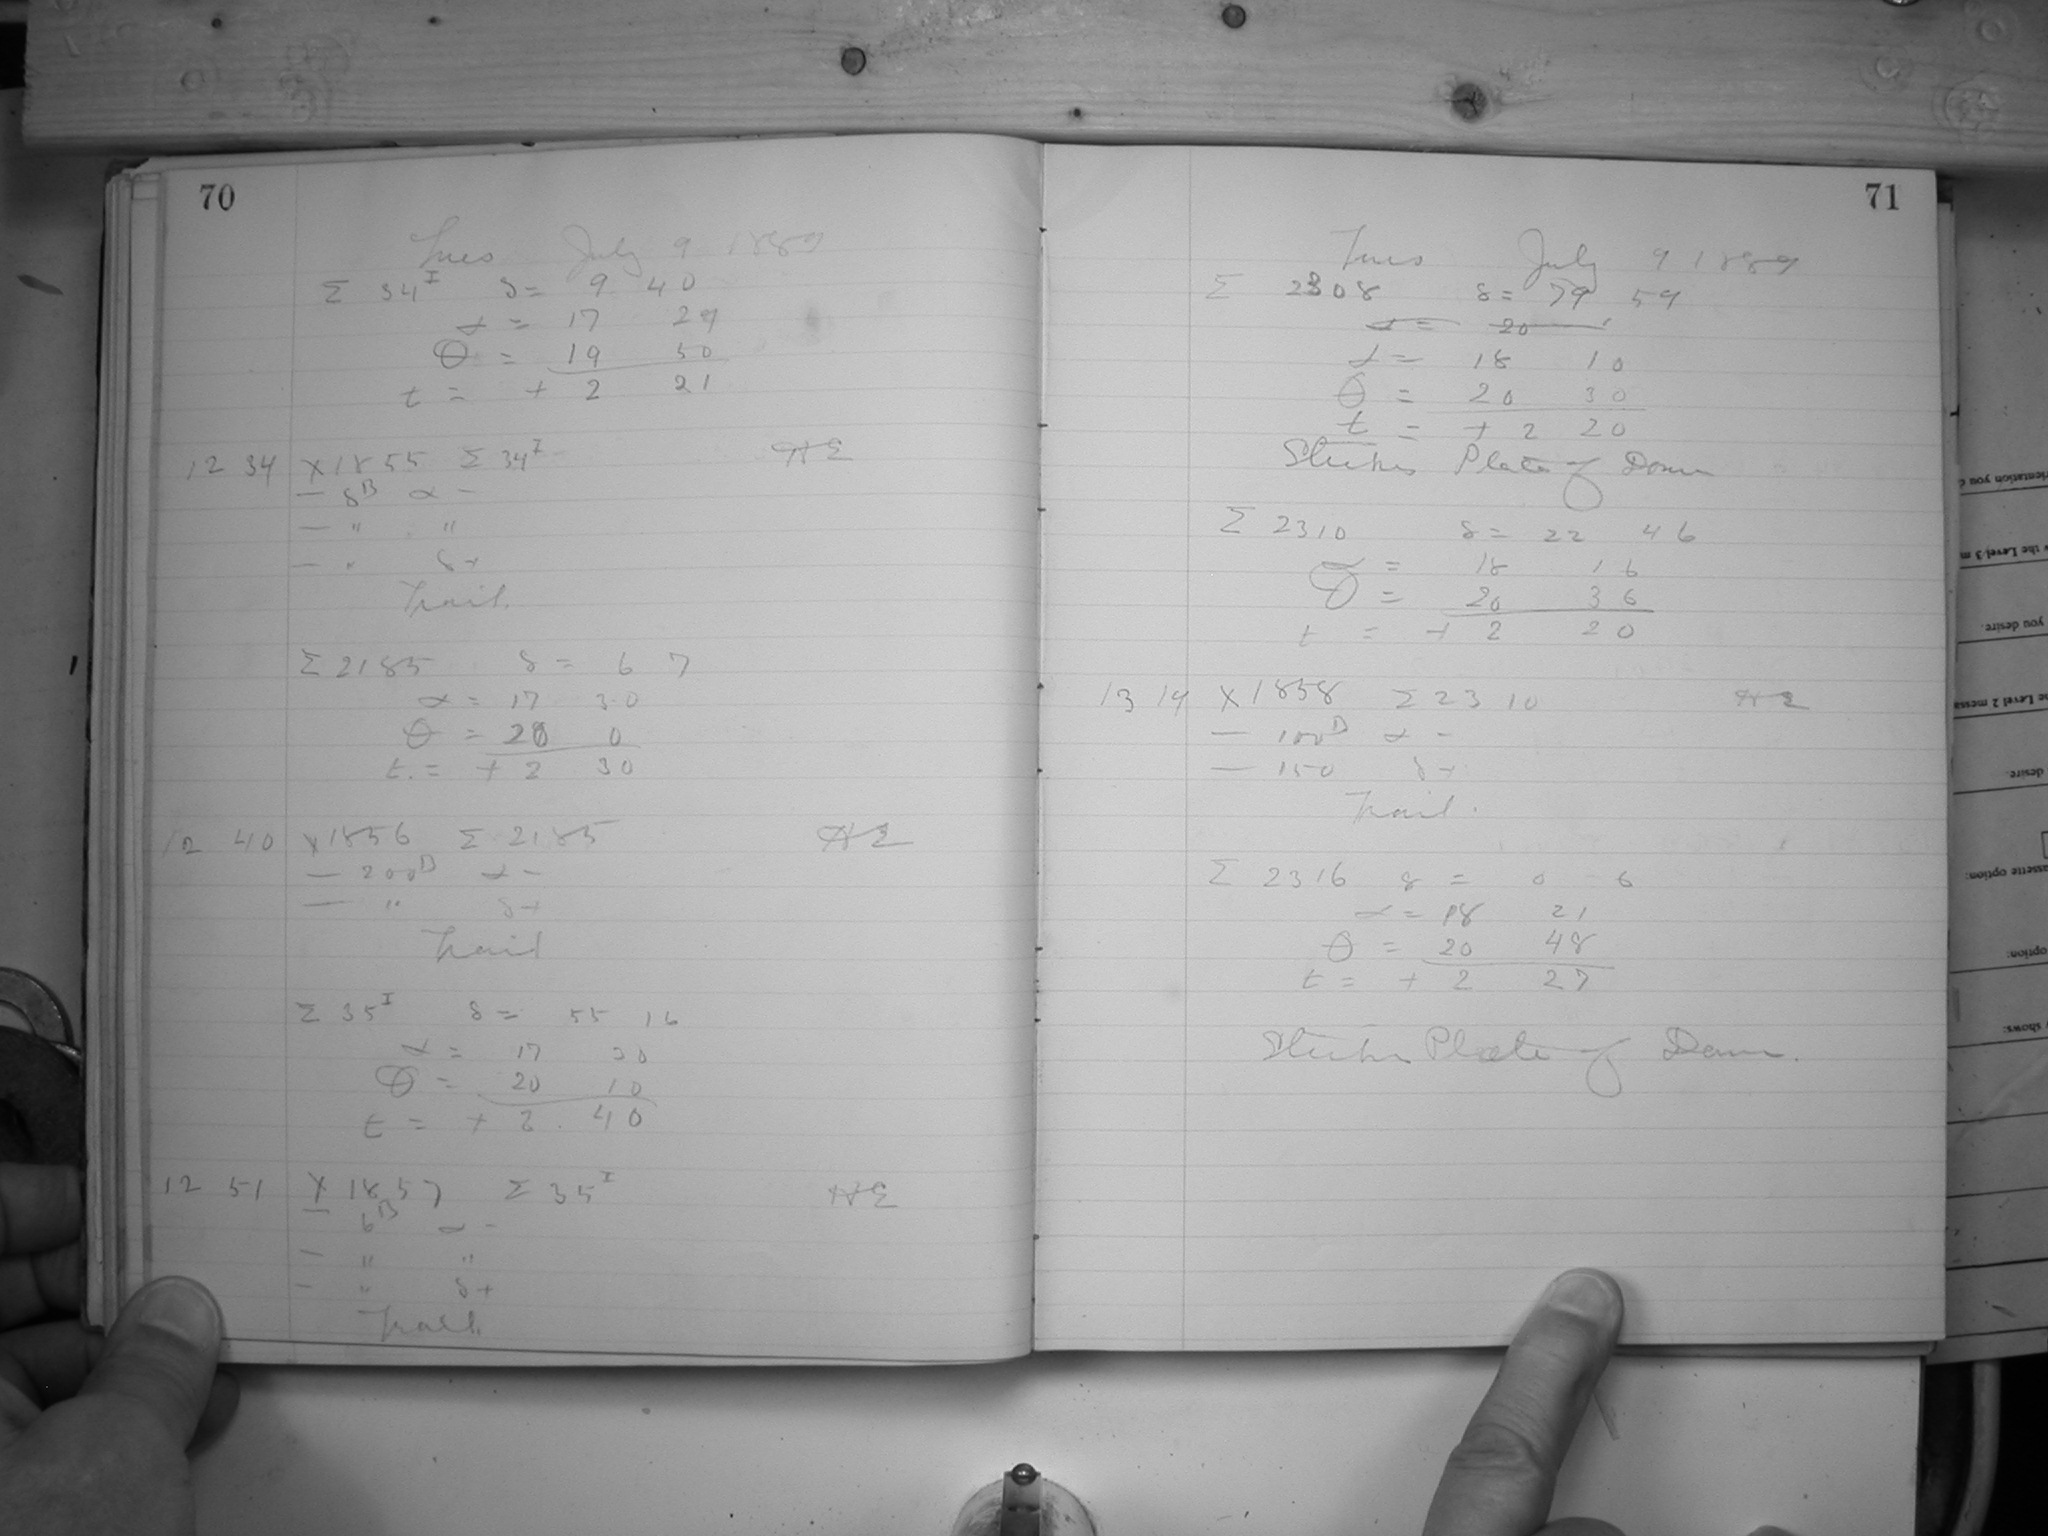 70
Tues July 9 1889
Σ 34ᴵ δ = 9 40
α = 17 29
θ = 19 50
t = + 2 21
12 34 X1855 Σ 34ᴵ
— 8ᴰ α —
— " "
— " δ +
Trail.
Σ 2185 δ = 6 7
α = 17 30
θ = 20 0
t. = + 2 30
12 40 X1856 Σ 2185
— 200ᴰ α —
— " δ +
Trail
Σ 35ᴵ δ = 55 16
α = 17 30
θ = 20 10
t = + 2 40
12 51 X 1857 Σ 35ᴵ
— 6ᴰ α —
— " "
— " δ +
Trail.
71
Tues July 9 1889
Σ 2308 δ = 79 59
α = 20
α = 18 10
θ = 20 30
t = + 2 20
Strikes Plate of Dome
Σ 2310 δ = 22 46
α = 18 16
θ = 20 36
t = + 2 20
13 14 X1858 Σ 2310
— 100ᴰ α —
— 150 δ +
Trail.
Σ 2316 δ = 0 - 6
α = 18 21
θ = 20 48
t = + 2 27
Strikes Plate of Dome.
you desire.
desire.
option:
shows: